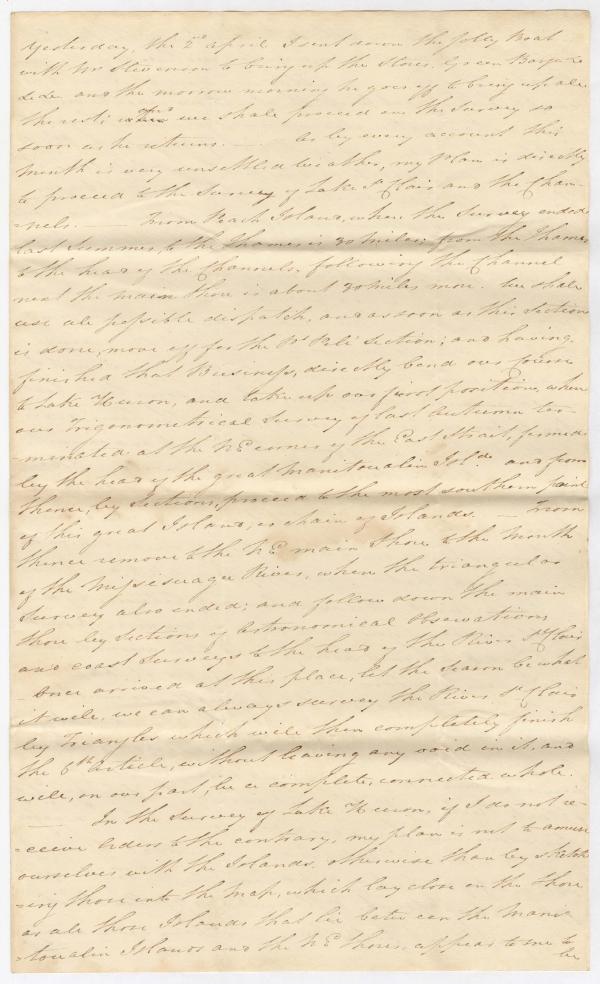 Yesterday, the 2nd april I sent down the Jolly Boat
with Mr Stevenson to bring up the Stores, Green Barge &c
&c &c and the morrow morning he goes off to bring up all
the rest: when we shall proceed on the Survey so
soon as he returns. — As by every account this
Month is very unsettled weather, my Plan is directly
to proceed to the Survey of Lake St Clair and the Chan-
-nels. — From Peach Island, where the Survey ended
last Summer, to the Thames is 30 Miles; from the Thames
to the head of the Channels, following the Channel
next the main shore is about 30 miles more. We shall
use all possible dispatch, and as soon as this Section
is done, move off for the Pt Pelé Section; and having
finished that Business, directly bend our course
to Lake Huron, and take up our first position, where
our Trigonometrical Survey of last Autumn ter-
-minated at the NE corner of the East Strait, formed
by the head of the great Manitoualin Isld and from
thence, by Sections, proceed to the most southern point
of this great Island, or chain of Islands. — From
thence remove to the NE main shore to the Mouth
of the Missesauga River, where the triangular
Survey also ended; and follow down the main
shore by Sections of Astronomical Observations
and coast Surveys to the head of the River St Clair
Once arrived at this place, let the Season be what
it will, we can always survey the River St Clair
by Triangles which will then completely finish
the 6th article, without leaving any void in it, and
will, on our part, be a complete, connected whole.
— In the Survey of Lake Huron, if I do not re-
-ceive orders to the contrary, my plan is not to amuse
ourselves with the Islands, otherwise than by sketch-
-ing those into the Map, which lay close on the shore
as all those Islands that lie between the Mani-
-toualin Islands and the NE shores, appear to me to
be